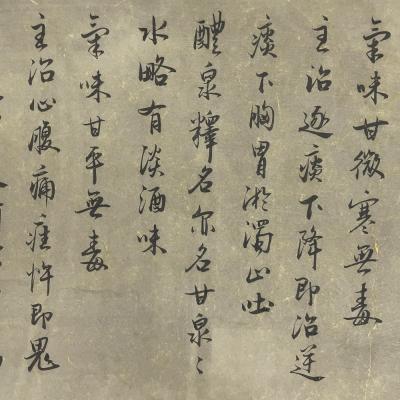 氣味甘微寒無毒
主治逐痰下降即治逆
痰下胸胃淤濁止吐
醴泉釋名尔名甘泉〻
水略有淡酒味
氣味甘平無毒
主治心腹痛疰忤即鬼